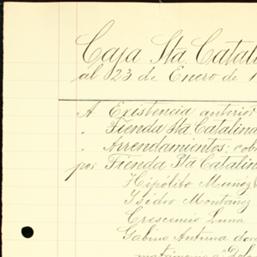 Caja Sta Catali
al 23 de Enero de 1
A Existencia anterior
" Tienda Sta Catalina
" Arrendamientos; cob
por Tienda Sta Catalin
Hipólito Muñoz
Isidro Montanez
Crescencio Luna
Gabino Antuna